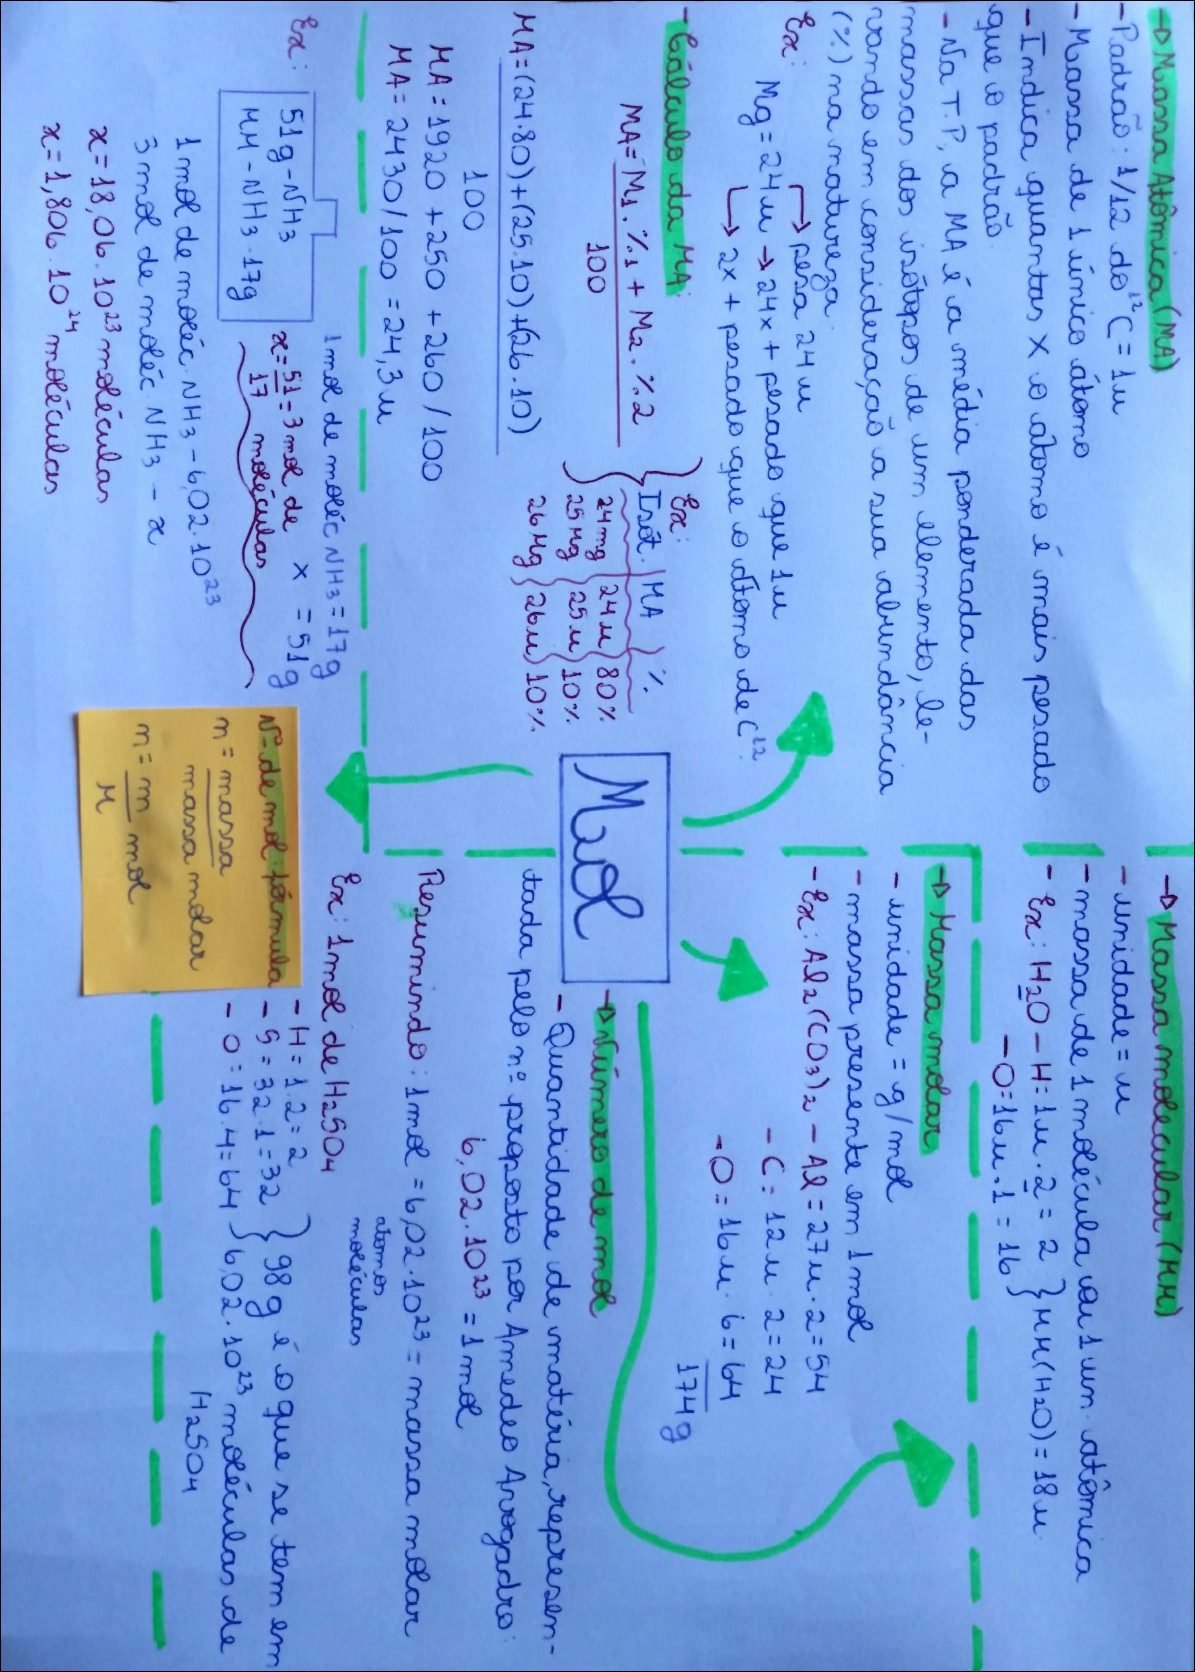 → Massa Atômica (MA)
- Padrão: 1/12 do ¹²C = 1u
- Massa de 1 único átomo
- Indica quantas x o átomo é mais pesado
que o padrão
- Na T.P, a MA é a média ponderada das
massas dos isótopos de um elemento, le-
vando em consideração a sua abundância
(%) na natureza.
Ex:
→ pesa 24u
Mg = 24u → 24x + pesado que 1u
→ 2x + pesado que o átomo de C¹²
- Cálculo da MA:
MA = M1.%1 + M2.%2
100
Ex:
Isót. MA %
24mg 24u 80%
25Mg 25u 10%
26Mg 26u 10%
MA = (24.80) + (25.10) + (26.10)
100
MA = 1920 + 250 + 260 / 100
MA = 2430/100 = 24,3u
→ Massa molecular (MM)
- unidade = u
- massa de 1 molécula ou 1 un. atômica
- Ex: H2O - H = 1u . 2 = 2
- O = 16u . 1 = 16
MM(H2O) = 18u
→ Massa molar
- unidade = g/mol
- massa presente em 1 mol
- Ex: Al2(CO3)2 - Al = 27u . 2 = 54
- C = 12u . 2 = 24
- O = 16u . 6 = 64
174g
Mol
→ Número de mol
- Quantidade de matéria, represen-
tada pelo nº proposto por Amedeo Avogadro:
6,02.10²³ = 1 mol
Resumindo: 1 mol = 6,02.10²³ = massa molar
átomos
moléculas
Ex: 1 mol de H2SO4
- H = 1.2 = 2
- S = 32.1 = 32
- O = 16.4 = 64
98g é o que se tem em
6,02.10²³ moléculas de
H2SO4
Nº de mol: fórmula
n = massa
massa molar
n = m mol
M
Ex:
51g - NH3
MM - NH3 . 17g
1 mol de moléc NH3 = 17g
x = 51g
x = 51 = 3 mol de
17 moléculas
1 mol de moléc NH3 - 6,02.10²³
3 mol de moléc NH3 - x
x = 18,06.10²³ moléculas
x = 1,806.10²⁴ moléculas